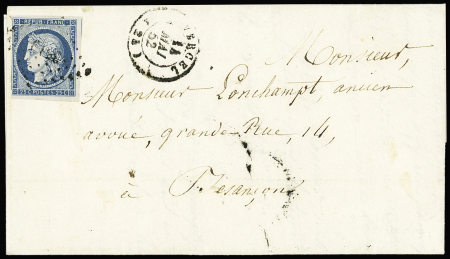 REPUB. FRANC.
25 C POSTES 25 C
VERCEL
11
MAI
52
Monsieur,
Monsieur Lonchampt, ancien
avoué, grande Rue, 14,
à Besançon